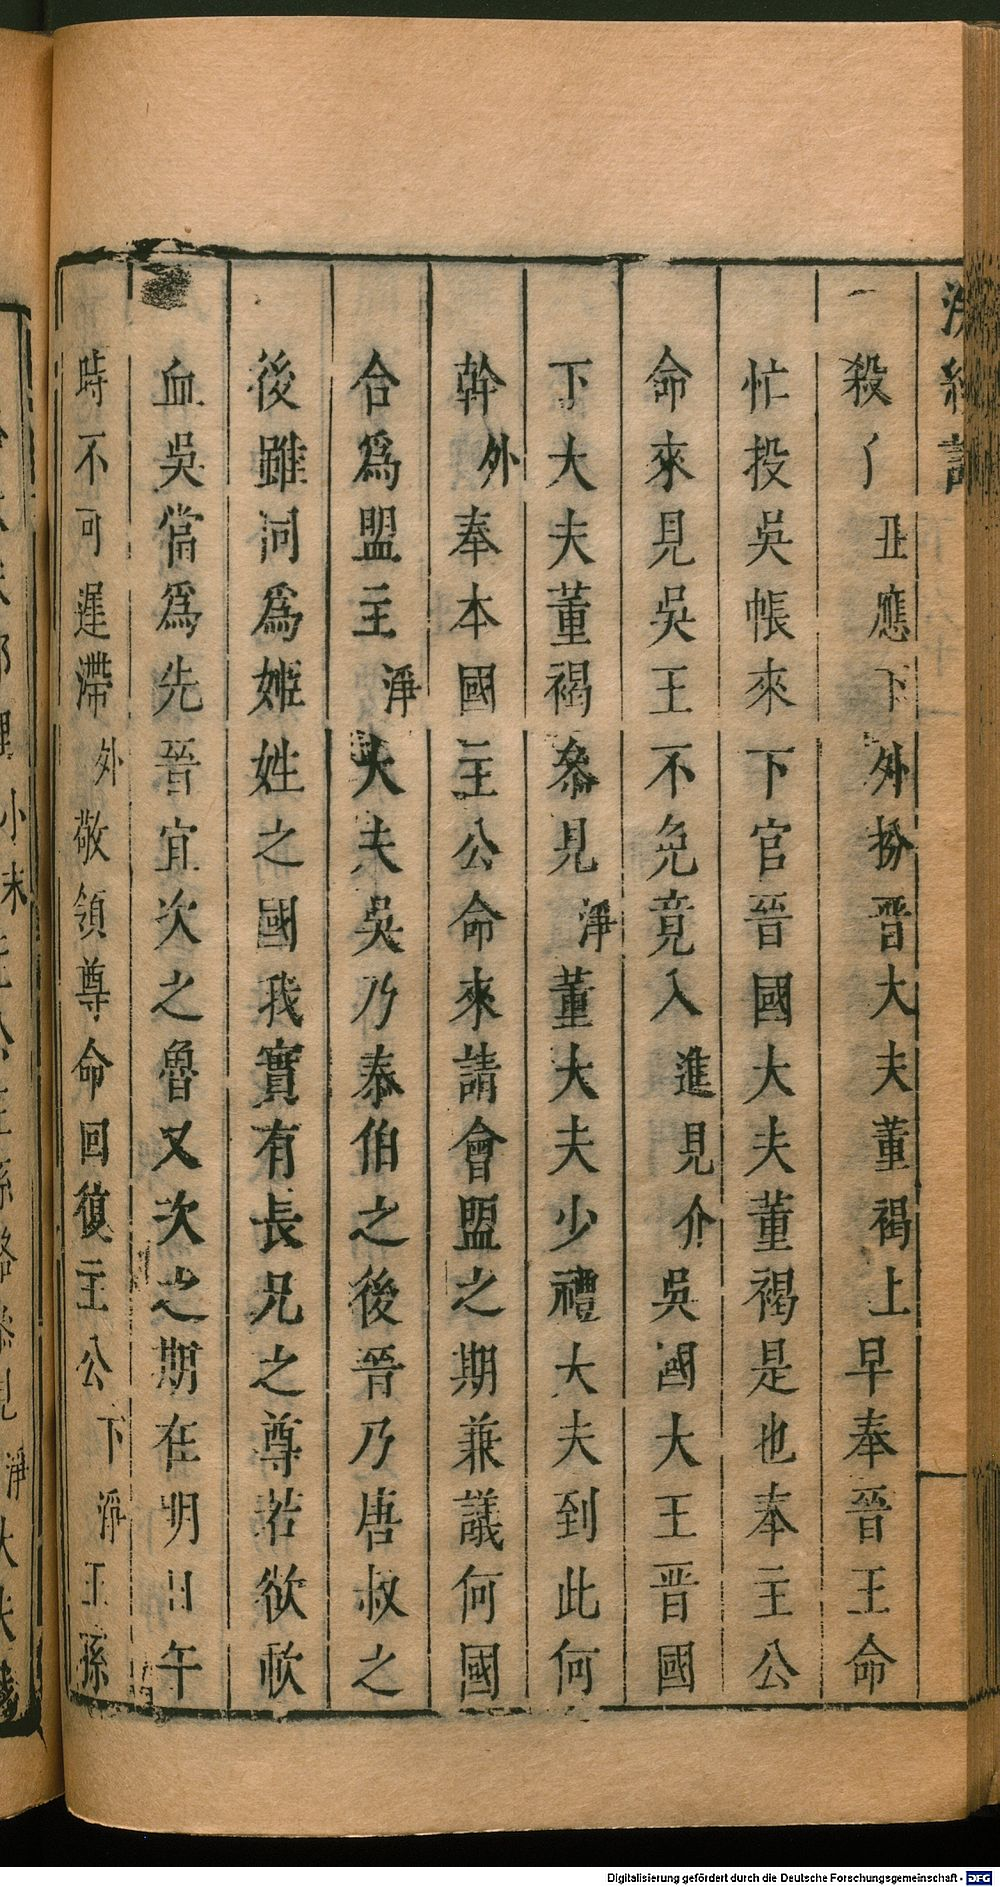 浣紗記
殺了丑應下外扮晋大夫董褐上早奉晉王命
忙投吳帳來下官晉國大夫董褐是也奉主公
命來見吳王不免竟入進見介吳國大王晋國
下大夫董褐叅見淨董大夫少禮大夫到此何
幹外奉本國主公命來請會盟之期兼議何國
合爲盟主淨大夫吳乃泰伯之後晉乃唐叔之
後雖同爲姬姓之國我實有長兄之尊若欲歃
血吳當爲先晉宜次之魯又次之期在明日午
時不可遲滯外敬領尊命回復主公下淨王孫
Digitalisierung gefördert durch die Deutsche Forschungsgemeinschaft - DFG